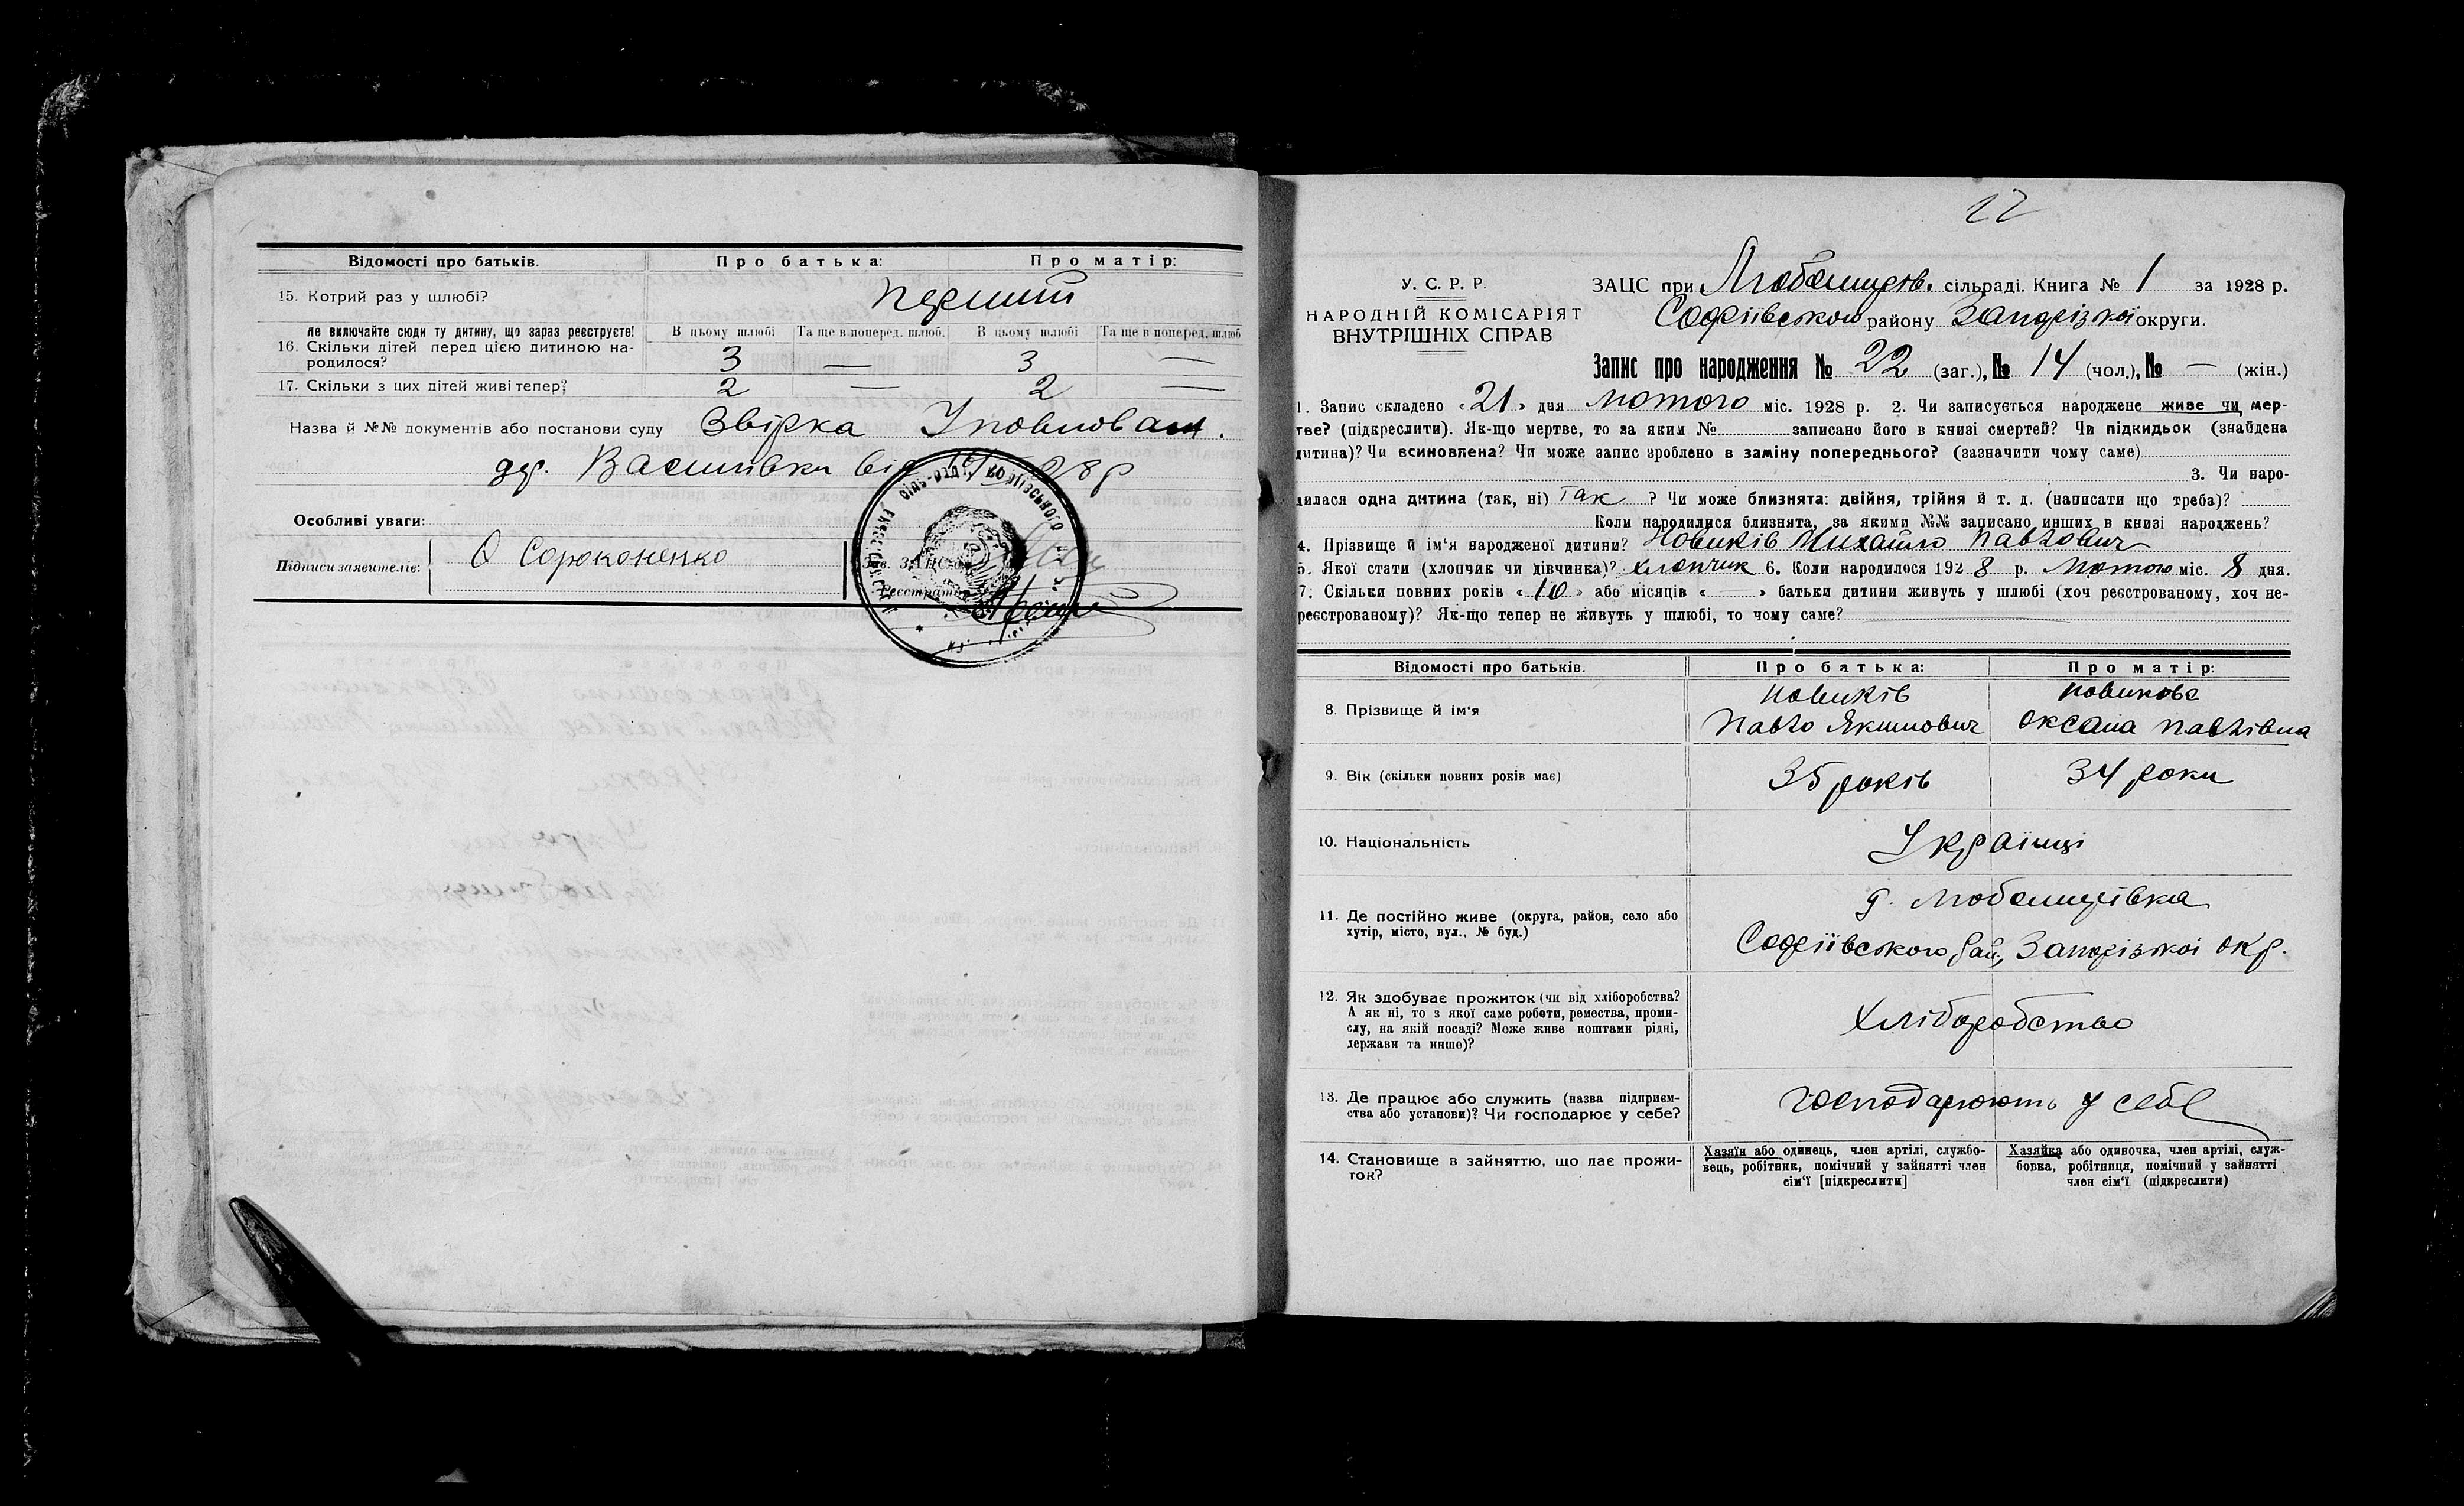 Відомості про батьків. Про батька: Про матір:
15. Котрий раз у шлюбі? перший
Не включайте сюди ту дитину, що зараз реєструєте! В цьому шлюбі Та ще в поперед. шлюб. В цьому шлюбі Та ще в поперед. шлюб
16. Скільки дітей перед цією дитиною на-
родилося? 3 — 3 —
17. Скільки з цих дітей живі тепер? 2 — 2 —
Назва й №№ документів або постанови суду Звірка Уповноваж.
дер. Василівки від 28р
Особливі уваги:
Підписи заявителів: О Сороконенко
Зав. ЗАЦС'ом
Реєстратор
22
У. С. Р. Р.
НАРОДНІЙ КОМІСАРІЯТ
ВНУТРІШНІХ СПРАВ
ЗАЦС при Любомирів. сільраді. Книга № 1 за 1928 р.
Софіївського району Запорізької округи.
Запис про народження № 22 (заг.), № 14 (чол.), № — (жін.)
1. Запис складено «21» дня лютого міс. 1928 р. 2. Чи записується народжене живе чи мер-
тве? (підкреслити). Як-що мертве, то за яким № записано його в книзі смертей? Чи підкидьок (знайдена
дитина)? Чи всиновлена? Чи може запис зроблено в заміну попереднього? (зазначити чому саме)
3. Чи наро-
дилася одна дитина (так, ні) так ? Чи може близнята: двійня, трійня й т. д. (написати що треба)?
Коли народилися близнята, за якими №№ записано инших в книзі народжень?
4. Прізвище й ім'я народженої дитини? Новиків Михайло Павлович
5. Якої стати (хлопчик чи дівчинка)? хлопчик 6. Коли народилося 1928 р. Лютого міс. 8 дня.
7. Скільки повних років «10» або місяців « — » батьки дитини живуть у шлюбі (хоч реєстрованому, хоч не-
реєстрованому)? Як-що тепер не живуть у шлюбі, то чому саме?
Відомості про батьків. Про батька: Про матір:
8. Прізвище й ім'я Новиків Новикова
Павло Якимович Оксана Павлівна
9. Вік (скільки повних років має) 35 років 34 роки
10. Національність Українці
11. Де постійно живе (округа, район, село або
хутір, місто, вул., № буд.) д. Любомирівка
Софіївського рай., Запорізької окр.
12. Як здобуває прожиток (чи від хліборобства?
А як ні, то з якої саме роботи, ремества, проми-
слу, на якій посаді? Може живе коштами рідні,
держави та инше)? Хліборобство
13. Де працює або служить (назва підприєм-
ства або установи)? Чи господарює у себе? господарюють у себе
14. Становище в зайняттю, що дає прожи-
ток?
Хазяїн або одинець, член артілі, службо-
вець, робітник, помічний у зайнятті член
сім'ї [підкреслити]
Хазяйка або одиночка, член артілі, служ-
бовка, робітниця, помічний у зайнятті
член сім'ї (підкреслити)